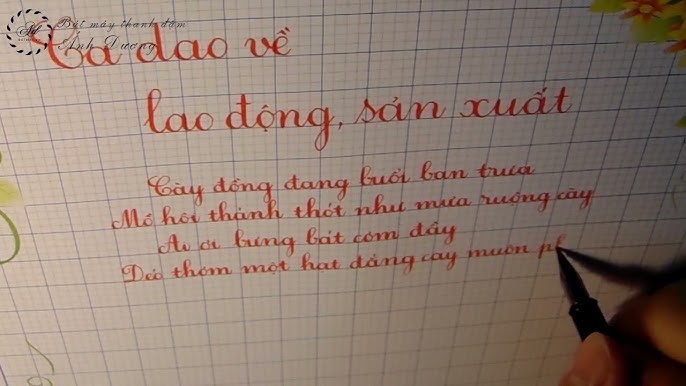 Bút máy thanh đậm
Ánh Dương
Ca dao về
lao động, sản xuất
Cày đồng đang buổi ban trưa
Mồ hôi thánh thót như mưa ruộng cày
Ai ơi bưng bát cơm đầy
Dẻo thơm một hạt đắng cay muôn ph